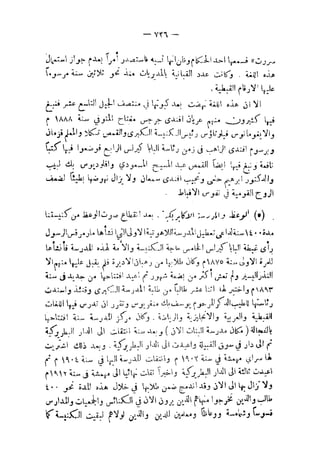 — ٧٣٦ —
مررت» فسمعها احد الحكام وظن انها تسبه فاستصدر أمراً بعدم جواز استعمال
هذه اللغة . وكانت عدد القبانية بالمديريات منذ نحو ثلاثين سنة مرسوماً
عليها الارقام القبطية .
الا ان هذه اللغة نهضت بعد كبوتها في منتصف الجيل التاسع عشر فنبغ
فيها كثيرون منهم عريان افندى جرجس مفتاح المتوفي سنة ١٨٨٨ م
والايغومانوس فيلوثاؤس رئيس الكنيسة الكبرى والقمص تكلا والمعلم قزمان
وبرسوم افندى الراهب في زمن رئاسة البابا كيرلس الرابع فوضعوا فيها كتباً
نافعة ونبغ فيها ايضاً القمص عبد المسيح المسعودي وأقلوديوس بك لبيب
والدكتور ابرهيم حلمى ونجيب افندى سمعان ولا يزال نهوضها بطيئاً لضعف
الروح القومية في نفوس الاقباط .
(٥) الوعظ والمدرسة الاكليريكية . بعد انقطاع صوت الوعظ من كنيستنا
مدة ١٤٠٠ سنة لداعى تعطيل المدرسة اللاهوتية الاولى التي انشأها مار مرقس الرسول
رأى غبطة البابا كيرلس الخامس حاجة الكنيسة والأمة لهذه المدرسة فأنشأها
للمرة الاولى سنة ١٨٧٥م وكان طلابها من رهبان الاديرة فلم يقبل عليها منهم الا
النذر اليسير ولم تعش أكثر من بضعة شهور ثم أعيد افتتاحها من جديد في سنة
١٨٩٣م واختير لها اثنا عشر طالباً من طلبة المدرسة الكبرى وقتئذ واسندت
رئاستها لطيب الذكر المرحوم يوسف بك منقريوس وتقرر ان تدرس فيها اللغات
القبطية والعربية والانجليزية والرياضة . وكان مركز المدرسة سنة افتتاحها
بالفجالة (مكان مدرسة البنات الآن) وبعد سنة انتقلت الى الدار البطريركية
ثم الى دار في سوق القبيلة واعيدت الى الدار البطريركية . وبعد ذلك اشتريت
لها سراي مهمشة في سنة ١٩٠٢ م وانتقلت المدرسة اليها في سنة ١٩٠٤ م ثم
اعيدت ثالثة الى الدار البطريركية واخيراً نقلت نهائياً الى مهمشة في سنة ١٩١٢م
ولا تزال بها الى الان وقد اندمج ضمن طلابها في خلال هذه المدة نحو ٤٠٠
طالب والذين تخرجوا منها هم الذين يرون الان في الكنائس والجمعيات والمدارس
قسوساً وشمامسة ووعاظاً ومعلمين الدين والذين لولاهم لبقيت الكنيسة كما